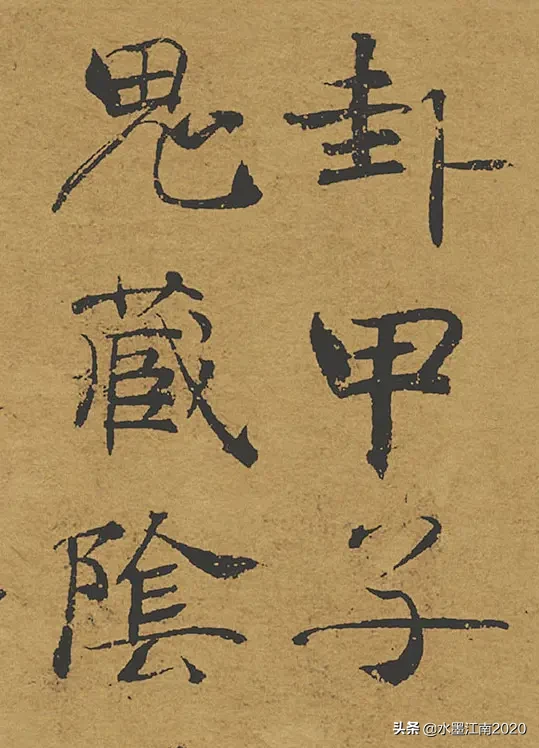 卦甲子
鬼藏陰
头条 @水墨江南2020